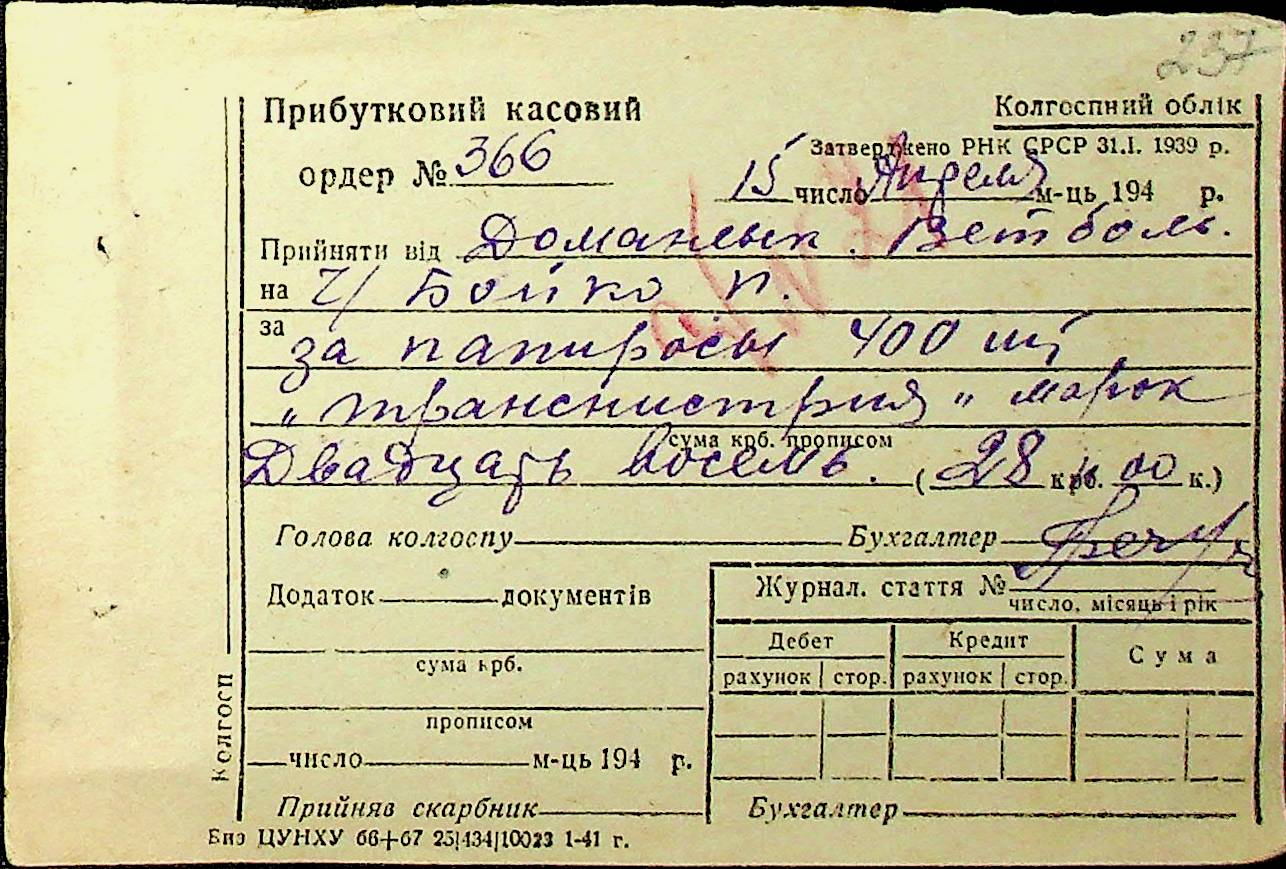 237
Прибутковий касовий
Колгоспний облік
Затверджено РНК СРСР 31.І. 1939 р.
ордер № 366
15 число Апреля м-ць 194 р.
Прийняти від Доманевск. Ветболь.
на ч/ Бойко П.
за за папиросы 400 шт
„транснистрия" марок
сума крб. прописом
Двадцать восемь. (28 крб. 00 к.)
Голова колгоспу Бухгалтер
Додаток документів
Журнал. стаття №
число, місяць і рік
Дебет Кредит Сума
рахунок стор. рахунок стор.
сума крб.
прописом
число м-ць 194 р.
Колгосп
Прийняв скарбник Бухгалтер
Биз ЦУНХУ 66+67 25|434|10023 1-41 г.